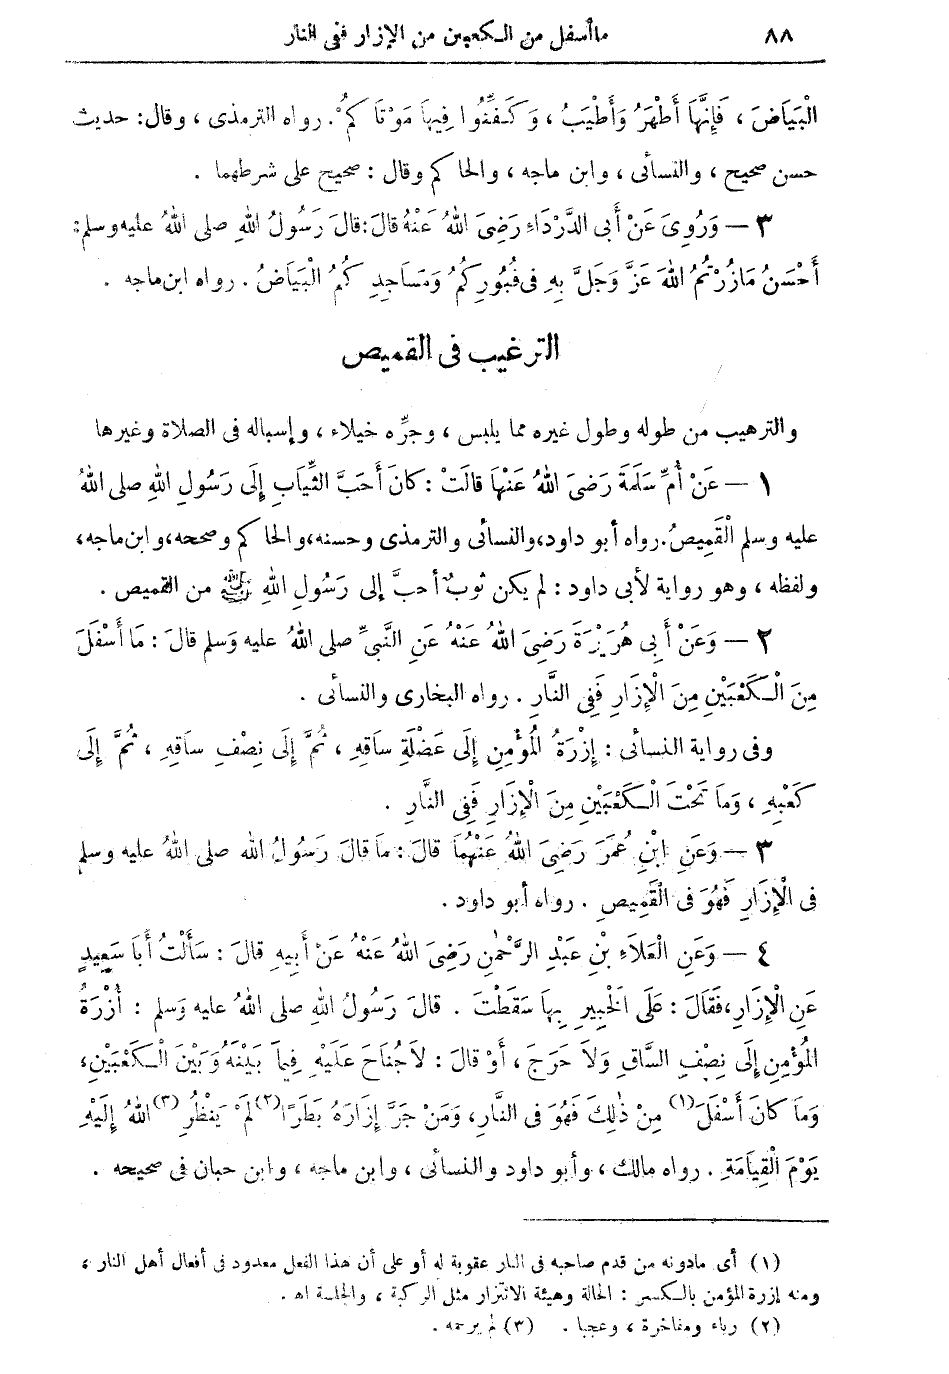 ٨٨ ما أسفل من الكعبين من الإزار ففى النار
الْبَيَاضَ ، فَإِنَّهَا أَطْهَرُ وَأَطْيَبُ ، وَكَفِّنُوا فِيهَا مَوْتَاكُمْ . رواه الترمذى ، وقال : حديث
حسن صحيح ، والنسائى ، وابن ماجه ، والحاكم وقال : صحيح على شرطهما .
٣ — وَرُوِىَ عَنْ أَبِى الدَّرْدَاءِ رَضِىَ اللهُ عَنْهُ قَالَ : قَالَ رَسُولُ اللهِ صلى اللهُ عليه وسلم :
أَحْسَنُ مَا زُرْتُمُ اللهَ عَزَّ وَجَلَّ بِهِ فِى قُبُورِكُمُ وَمَسَاجِدِكُمُ الْبَيَاضُ . رواه ابن ماجه .
الترغيب فى القميص
والترهيب من طوله وطول غيره مما يلبس ، وجرِّه خيلاء ، وإسباله فى الصلاة وغيرها
١ — عَنْ أُمِّ سَلَمَةَ رَضِىَ اللهُ عَنْهَا قَالَتْ : كَانَ أَحَبَّ الثِّيَابِ إِلَى رَسُولِ اللهِ صلى اللهُ
عليه وسلم الْقَمِيصُ . رواه أبو داود ، والنسائى والترمذى وحسنه ، والحاكم وصححه ، وابن ماجه ،
ولفظه ، وهو رواية لأبى داود : لم يكن ثوبٌ أحبَّ إلى رَسُولِ اللهِ ﷺ من القميص .
٢ — وَعَنْ أَبِى هُرَيْرَةَ رَضِىَ اللهُ عَنْهُ عَنِ النَّبِىِّ صلى اللهُ عليه وَسلم قَالَ : مَا أَسْفَلَ
مِنَ الْكَعْبَيْنِ مِنَ الْإِزَارِ فَفِى النَّارِ . رواه البخارى والنسائى .
وفى رواية النسائى : إِزْرَةُ الْمُؤْمِنِ إِلَى عَضَلَةِ سَاقِهِ ، ثُمَّ إِلَى نِصْفِ سَاقِهِ ، ثُمَّ إِلَى
كَعْبِهِ ، وَمَا تَحْتَ الْكَعْبَيْنِ مِنَ الْإِزَارِ فَفِى النَّارِ .
٣ — وَعَنِ ابْنِ عُمَرَ رَضِىَ اللهُ عَنْهُمَا قَالَ : مَا قَالَ رَسُولُ الله صلى اللهُ عليه وسلم
فِى الْإِزَارِ فَهُوَ فِى الْقَمِيصِ . رواه أبو داود .
٤ — وَعَنِ الْعَلَاءِ بْنِ عَبْدِ الرَّحْمٰنِ رَضِىَ اللهُ عَنْهُ عَنْ أَبِيهِ قَالَ : سَأَلْتُ أَبَا سَعِيدٍ
عَنِ الْإِزَارِ ، فَقَالَ : عَلَى الْخَبِيرِ بِهَا سَقَطْتَ . قَالَ رَسُولُ اللهِ صلى اللهُ عليه وَسلم : أُزْرَةُ
الْمُؤْمِنِ إِلَى نِصْفِ السَّاقِ وَلَا حَرَجَ ، أَوْ قَالَ : لَا جُنَاحَ عَلَيْهِ فِيمَا بَيْنَهُ وَبَيْنَ الْكَعْبَيْنِ ،
وَمَا كَانَ أَسْفَلَ (١) مِنْ ذٰلِكَ فَهُوَ فِى النَّارِ ، وَمَنْ جَرَّ إِزَارَهُ بَطَرًا (٢) لَمْ يَنْظُرِ (٣) اللهُ إِلَيْهِ
يَوْمَ الْقِيَامَةِ . رواه مالك ، وأبو داود والنسائى ، وابن ماجه ، وابن حبان فى صحيحه .
(١) أى مادونه من قدم صاحبه فى النار عقوبة له أو على أن هذا الفعل معدود فى أفعال أهل النار ،
ومنه إزرة المؤمن بالكسر : الحالة وهيئة الائتزار مثل الركبة ، والجلسة اه .
(٢) رياء ومفاخرة ، وعجبا . (٣) لم يرحمه .